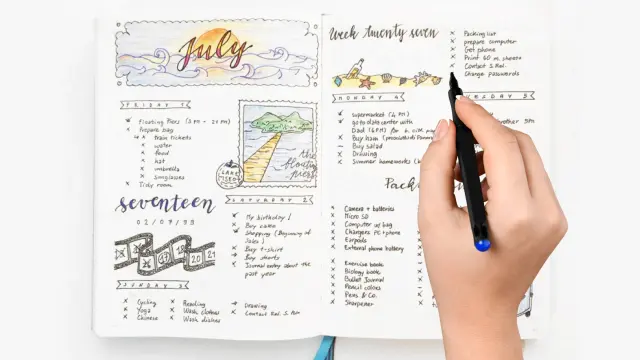 July
FRIDAY 1
Floating Piers (3 PM - 21 PM)
Prepare bag
train tickets
water
food
hat
umbrella
sunglasses
Tidy room
LAKE
ISEO
the
floating
piers
seventeen
02/07/99
SATURDAY 2
My birthday!
Buy cake
Shopping (Beginning of
Sales)
Buy t-shirt
Buy shorts
Journal entry about the
past year
17
20 21
SUNDAY 3
Cycling
Yoga
Chinese
Reading
Wash clothes
Wash dishes
Drawing
Contact Rel. S.
Week twenty seven
Packing list
prepare computer
Get phone
Print 60 m. sheets
Contact S. Rel.
Change passwords
MONDAY 4
supermarket (4 PM)
go to data center with
Dad (6 PM) for
Buy ham
Buy salad
Drawing
Summer homeworks
ESDAY 5
brother 3PM
Pack
Camera + batteries
Micro SD
Computer w/ bag
Chargers PC + phone
Earpods
External phone battery
Exercise book
Biology book
Bullet Journal
Pencil colors
Pens & Co.
Sharpener